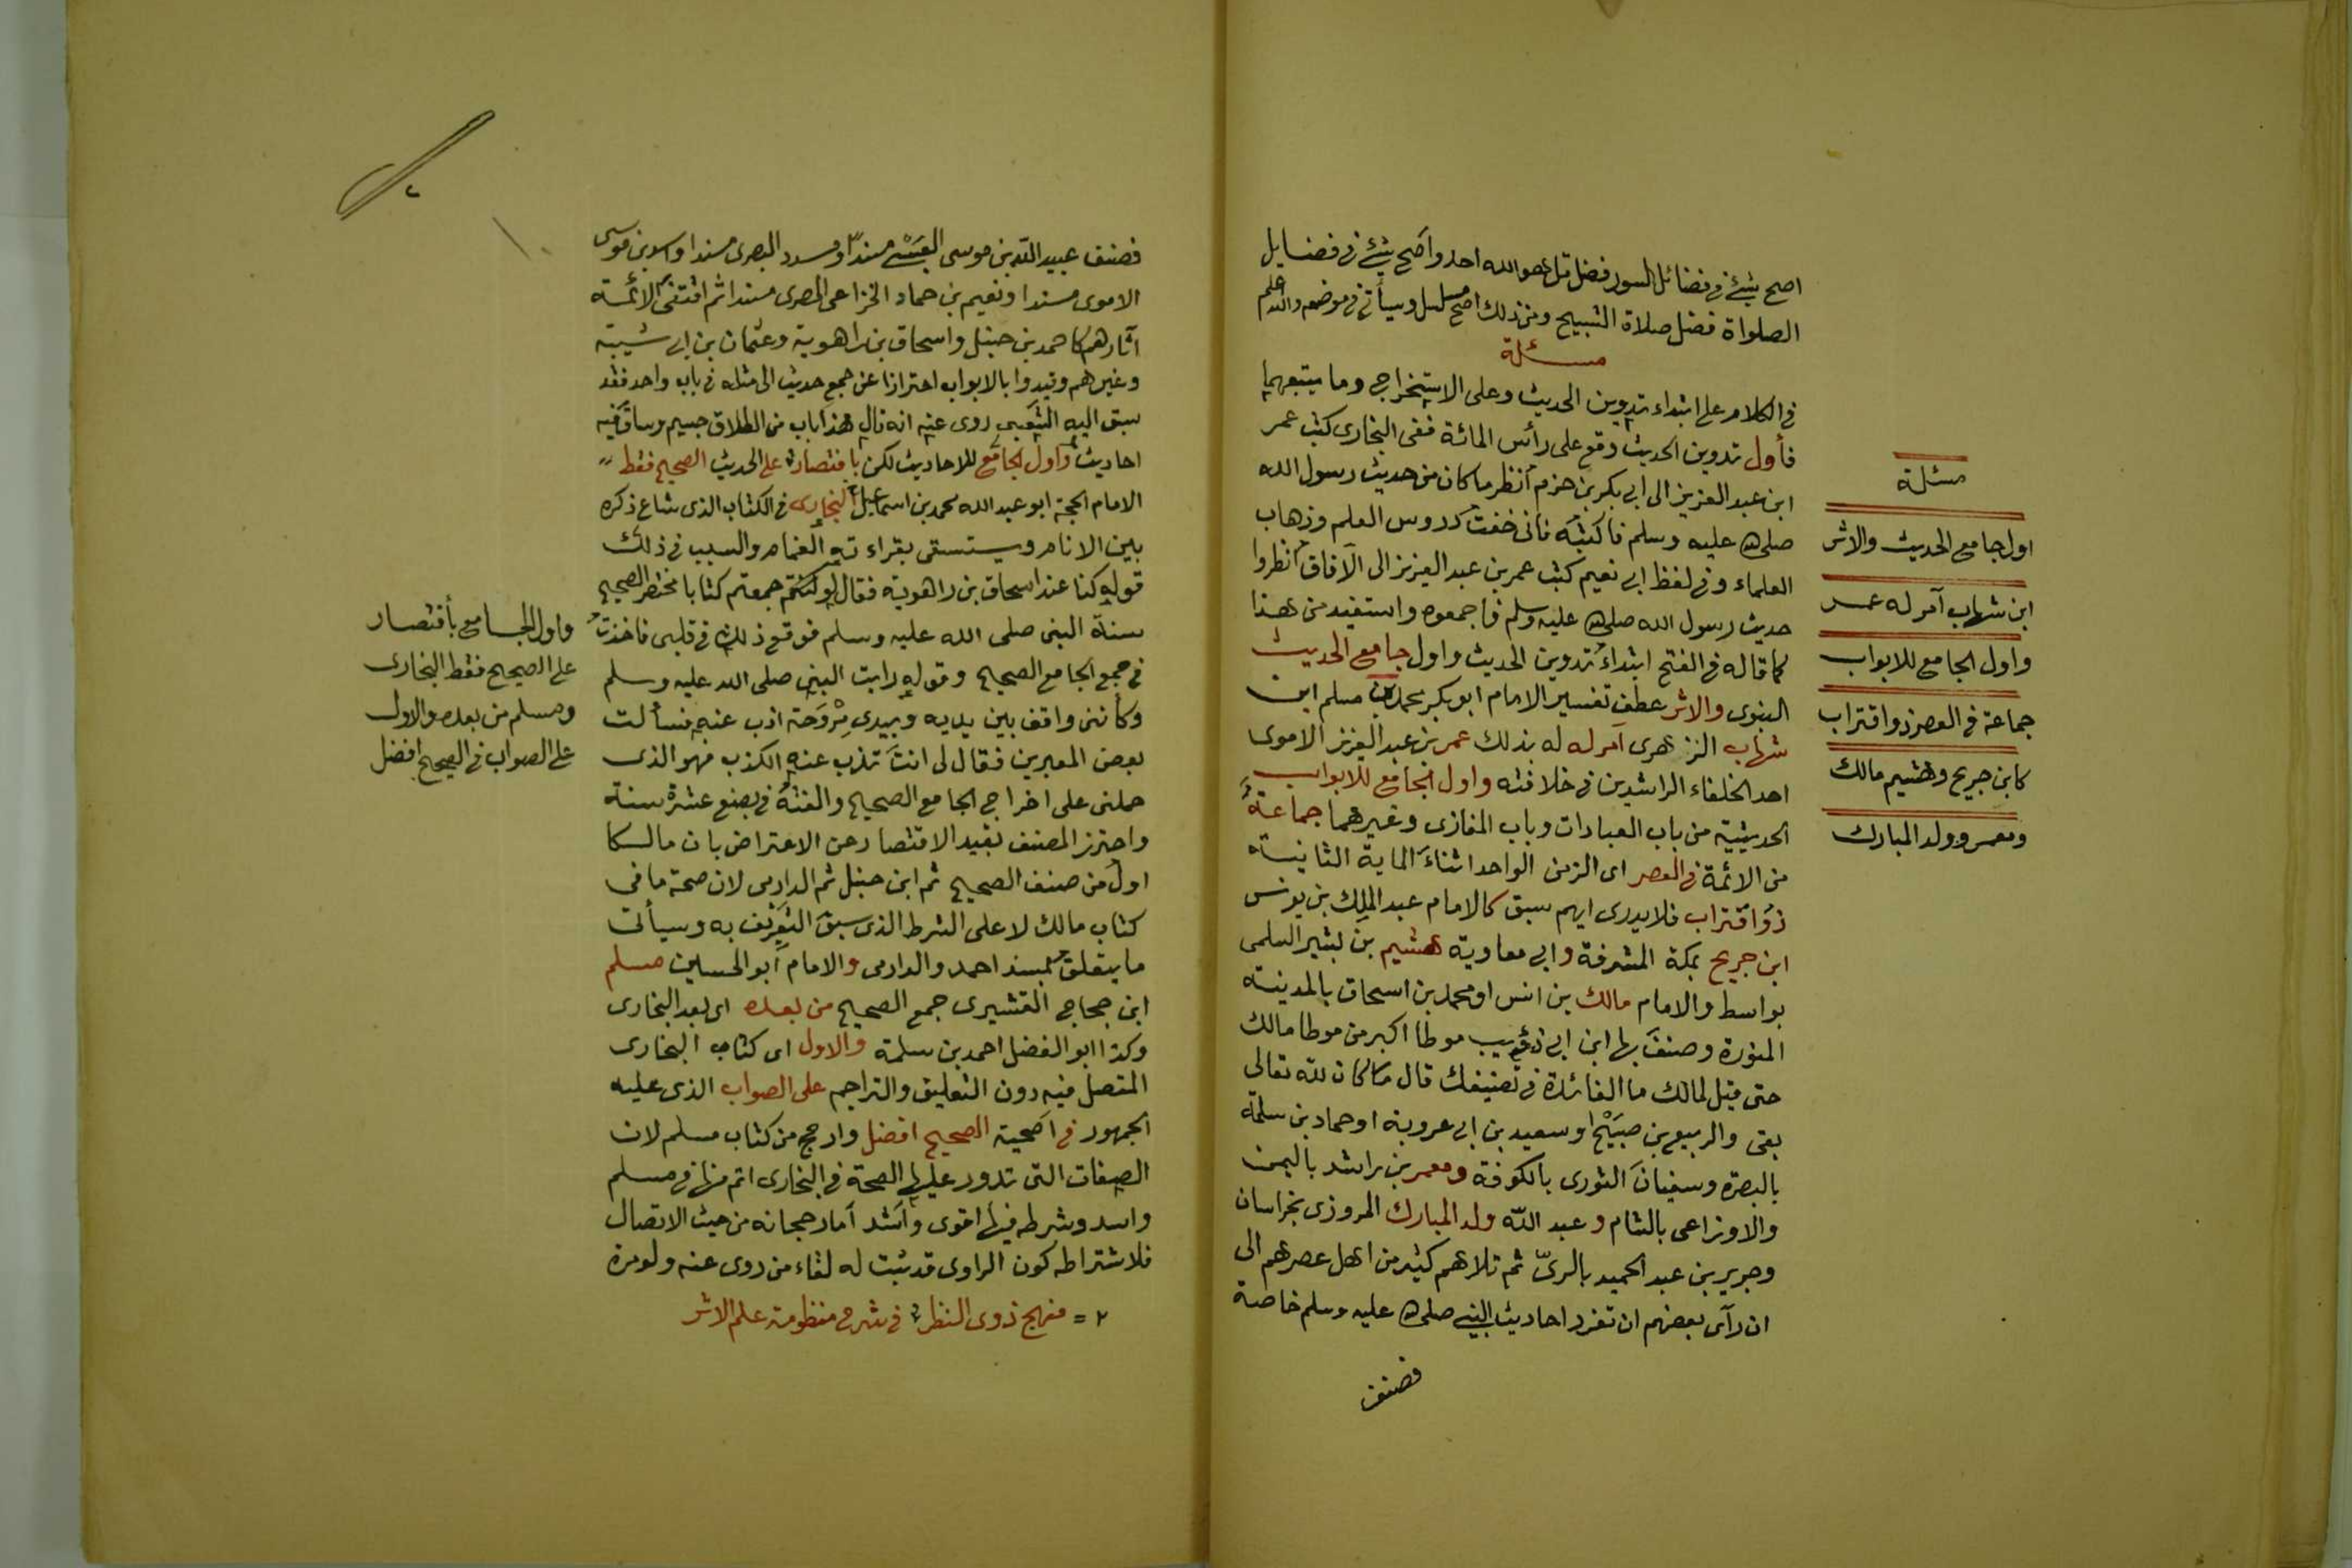 اصح شئ في فضائل السور فضل قل هو الله احد واصح شئ في فضايل
الصلواة فضل صلاة التسبيح ومن ذلك اصح مسلسل وسيأتي في موضعه والله اعلم
مسئلة
في الكلام على ابتداء تدوين الحديث وعلى الاستخراج وما يتبعهما
فأول تدوين الحديث وقع على رأس المائة ففي البخارى كتب عمر
ابن عبد العزيز الى ابي بكر بن حزم انظر ما كان من حديث رسول الله
صلى الله عليه وسلم فاكتبه فانى خفت دروس العلم وذهاب
العلماء وفي لفظ ابي نعيم كتب عمر بن عبد العزيز الى الآفاق انظروا
حديث رسول الله صلى الله عليه وسلم فاجمعوه واستفيد من هذا
كما قاله في الفتح ابتداء تدوين الحديث واول جامع الحديث
النبوى والاثر عطف تفسير الامام ابو بكر محمد بن مسلم ابن
شهاب الزهرى آمر له له بذلك عمر بن عبد العزيز الاموى
احد الخلفاء الراشدين في خلافته واول الجامع للابواب
الحديثية من باب العبادات وباب المغازى وغيرهما جماعة
من الائمة في العصر اى الزمن الواحد اثناء الماية الثانية
ذو اقتراب فلا يدرى ايهم سبق كالامام عبد الملك بن يونس
ابن جريج بمكة المشرفة وابي معاوية هشيم بن بشير السلمى
بواسط والامام مالك بن انس او محمد بن اسحاق بالمدينة
المنورة وصنف بها ابن ابي ذئيب موطا اكبر من موطا مالك
حتى قيل لمالك ما الفائدة في تصنيفك قال ما كان لله تعالى
بقى والربيع بن صبيح او سعيد بن ابي عروبة او حماد بن سلمة
بالبصرة وسفيان الثورى بالكوفة ومعمر بن راشد باليمن
والاوزاعى بالشام وعبد الله ولد المبارك المروزى بخراسان
وجرير بن عبد الحميد بالرىّ ثم تلاهم كثير من اهل عصرهم الى
ان رآى بعضهم ان تفرد احاديث النبي صلى الله عليه وسلم خاصة
فصنف
مسئلة
اول جامع الحديث والاثر
ابن شهاب آمر له عمر
واول الجامع للابواب
جماعة في العصر ذو اقتراب
كابن جريج وهشيم مالك
ومعمر وولد المبارك
٢
فصنف عبيد الله بن موسى العبسي مسنداً ومسدد البصرى مسندا واسد بن موسى
الاموى مسندا ونعيم بن حماد الخزاعى المصرى مسندا ثم اقتفى الائمة
آثارهم كاحمد بن حنبل واسحاق بن راهوية وعثمان بن ابي شيبة
وغيرهم وقيدوا بالابواب احترازا عن جمع حديث الى مثله في باب واحد فقد
سبق اليه الشعبي روى عنه انه قال هذا باب من الطلاق جسيم وساق فيه
احاديث واول الجامع للاحاديث لكن باقتصار على الحديث الصحيح فقط
الامام الحجة ابو عبد الله محمد بن اسماعيل البخارى في الكتاب الذى شاع ذكره
بين الانام ويستسقى بقراءته الغمام والسبب في ذلك
قوله كنا عند اسحاق بن راهوية فقال لو كنتم جمعتم كتابا مختصر الصحيح
سنة النبى صلى الله عليه وسلم فوقع ذلك في قلبى فاخذت
في جمع الجامع الصحيح وقوله رايت النبي صلى الله عليه وسلم
وكأننى واقف بين يديه وبيدى مروحة اذب عنه فسألت
بعض المعبرين فقال لى انت تذب عنه الكذب فهو الذى
حملنى على اخراج الجامع الصحيح والفته في بضع عشرة سنة
واحترز المصنف بقيد الاقتصار عن الاعتراض بان مالكا
اول من صنف الصحيح ثم ابن حنبل ثم الدارمى لان صحة ما في
كتاب مالك لا على الشرط الذى سبق التعريف به وسيأتى
ما يتعلق بمسند احمد والدارمى والامام ابو الحسين مسلم
ابن حجاج القشيرى جمع الصحيح من بعده اى بعد البخارى
وكذا ابو الفضل احمد بن سلمة والاول اى كتاب البخارى
المتصل فيه دون التعليق والتراجم على الصواب الذى عليه
الجمهور في اصحية الصحيح افضل وارجح من كتاب مسلم لان
الصفات التى تدور عليها الصحة في البخارى اتم منها في مسلم
واسد وشرطه فيها اقوى واشد اما رجحانه من حيث الاتصال
فلاشتراطه كون الراوى قد ثبت له لقاء من روى عنه ولو مرة
٢ = منهج ذوى النظر في شرح منظومة علم الاثر
واول الجامع بأقتصار
على الصحيح فقط البخارى
ومسلم من بعده والاول
على الصواب في الصحيح افضل